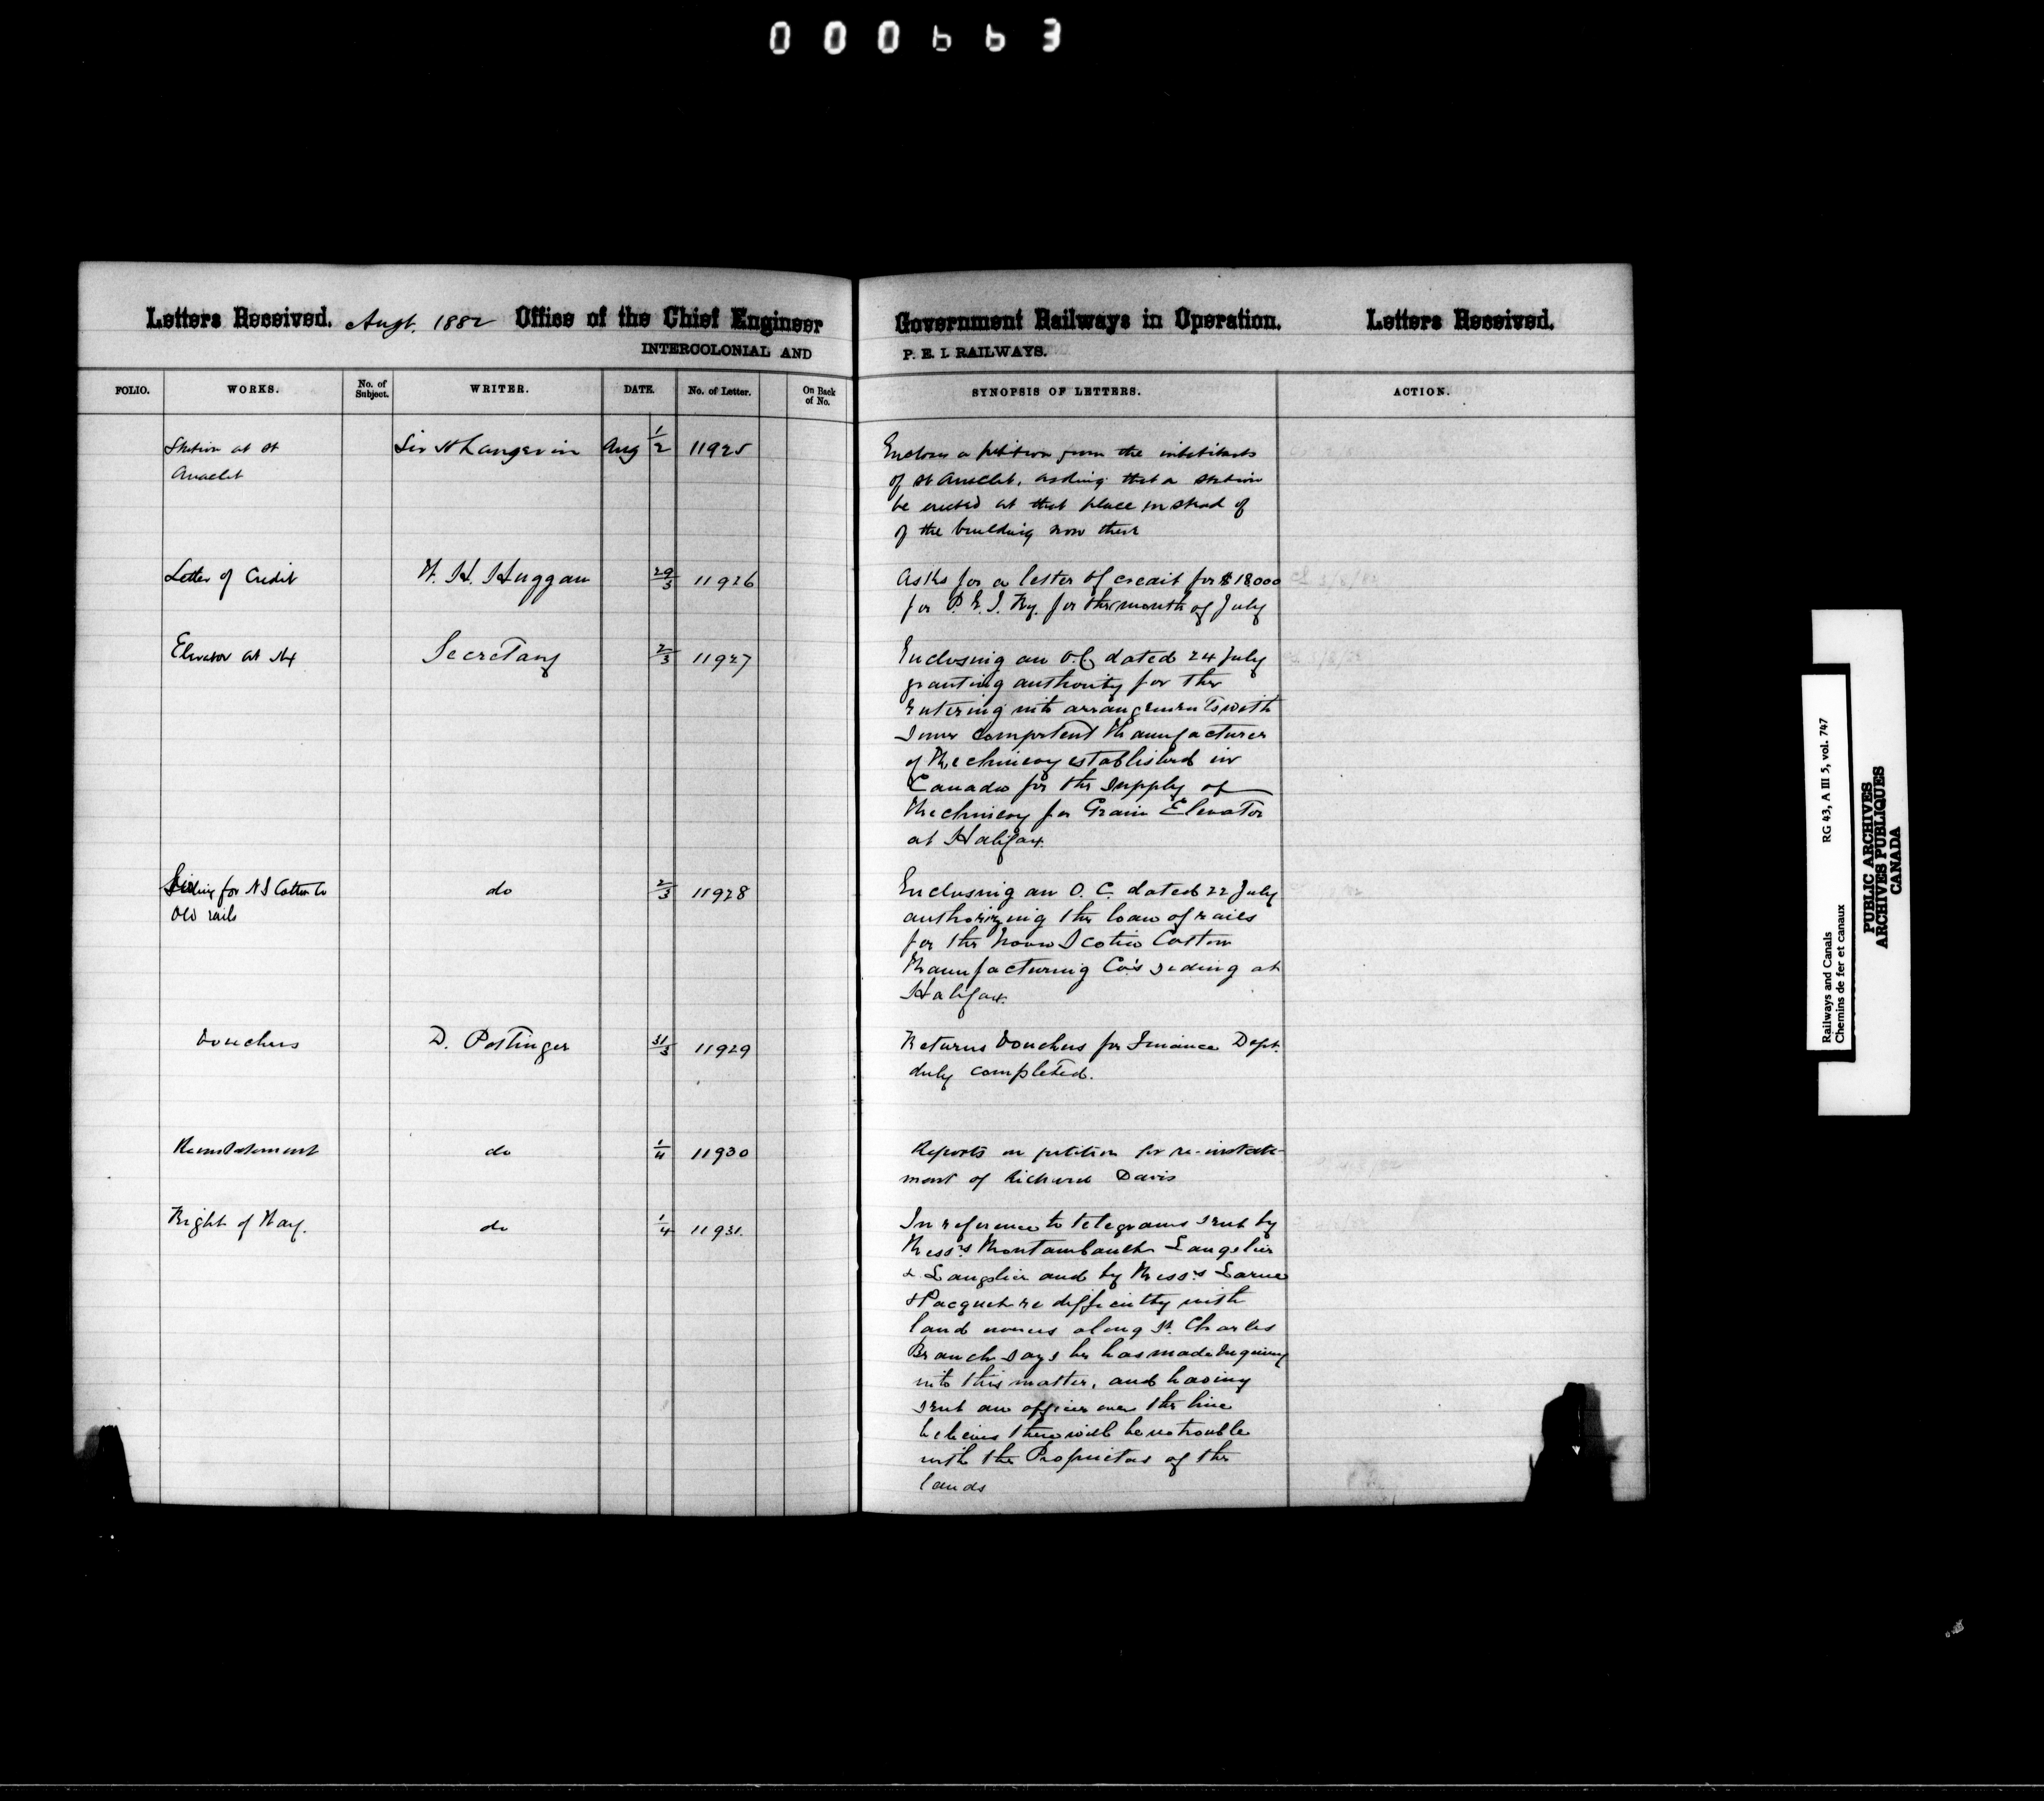 000663
Letters Received. Augt. 1882 Office of the Chief Engineer Government Railways in Operation. Letters Received.
INTERCOLONIAL AND P. E. I. RAILWAYS.
FOLIO. WORKS. No. of Subject. WRITER. DATE. No. of Letter. On Back of No. SYNOPSIS OF LETTERS. ACTION.
Station at St Anaclet
Sir H Langevin Aug 1/2 11925
Encloses a petition from the inhabitants
of St Anaclet, asking that a station
be erected at that place instead of
of the building now there
Letter of Credit W. H. Huggan 29/3 11926
Asks for a letter of credit for $18,000
for P. E. I. Ry. for the month of July
Elevator at Hx Secretary 2/3 11927
Enclosing an O.C. dated 24 July
granting authority for the
entering into arrangements with
some competent Manufacturer
of Machinery established in
Canada for the supply of
Machinery for Grain Elevator
at Halifax.
Siding for N S Cotton Co
Old rails
do 2/3 11928
Enclosing an O. C. dated 22 July
authorizing the loan of rails
for the Nova Scotia Cotton
Manufacturing Co's siding at
Halifax.
Vouchers D. Pottinger 31/3 11929
Returns Vouchers for Finance Dept.
duly completed.
Reinstatement do 1/4 11930
Reports on petition for re-instate-
ment of Richard Davis
Right of Way. do 1/4 11931.
In reference to telegrams sent by
Mess.rs Montambault Langelier
& Langelier and by Mess.rs Larue
& Pacquet re difficulty with
land owners along St. Charles
Branch says he has made inquiry
into this matter, and having
sent an officer over the line
believes there will be no trouble
with the Proprietors of the
lands
Railways and Canals RG 43, A III 5, vol. 747
Chemins de fer et canaux
PUBLIC ARCHIVES
ARCHIVES PUBLIQUES
CANADA